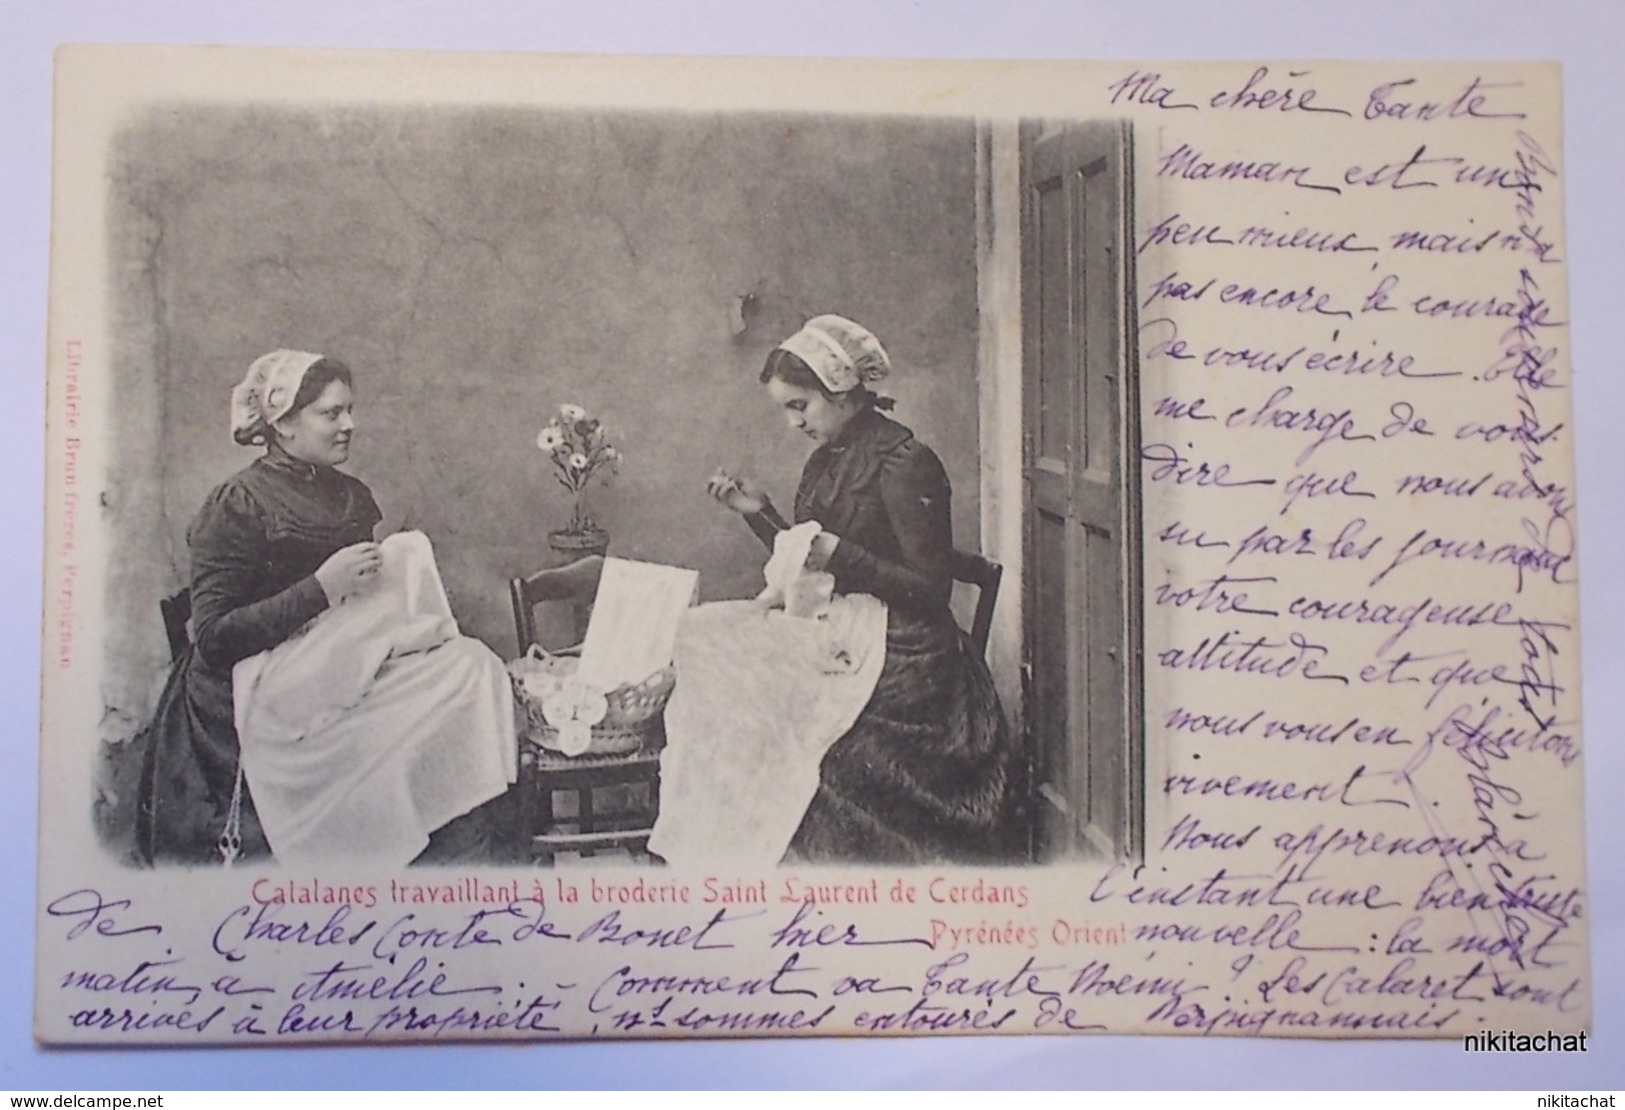 Ma chère Tante
Maman est un
peu mieux, mais n'a
pas encore le courage
de vous écrire. Elle
me charge de vous
dire que nous avons
su par les journaux
votre courageuse
attitude et que
nous vous en félicitons
vivement.
Nous apprenons à
l'instant une bien triste
nouvelle : la mort
de Charles Comte de Bonet hier
matin, à Amélie. - Comment va Tante Noémi ? Les Cabaret sont
arrivés à leur propriété, ns sommes entourés de Perpignannais.
de tous
Catalanes travaillant à la broderie Saint Laurent de Cerdans
Pyrénées Orient
Librairie Brun frères, Perpignan
nikitachat
delcampe.net
nikitachat